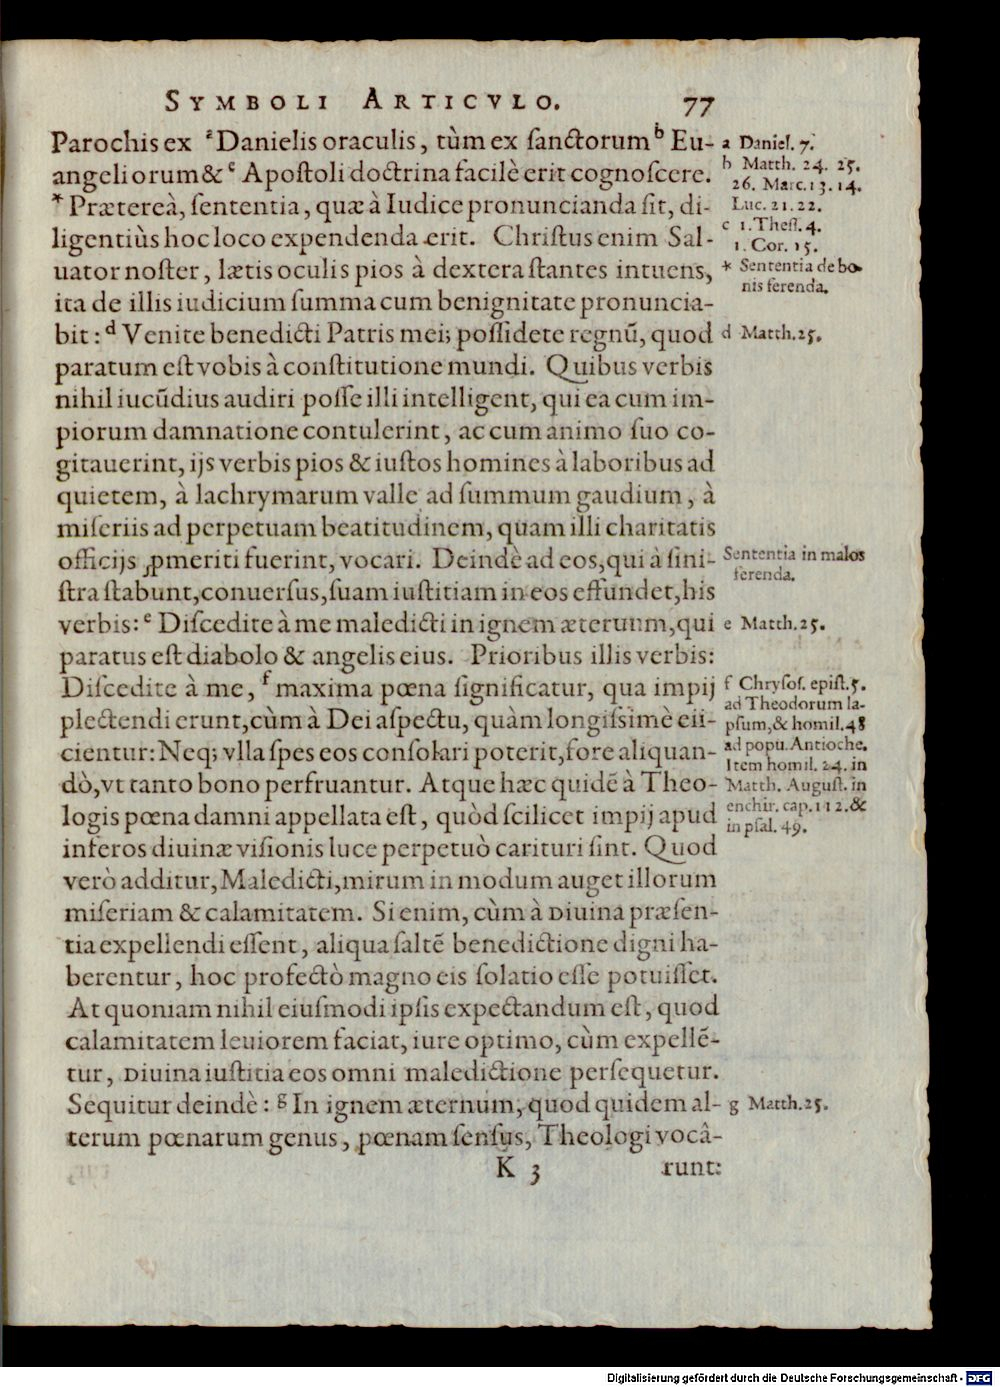 SYMBOLI ARTICVLO. 77
Parochis ex ᵃ Danielis oraculis, tùm ex ſanctorum ᵇ Eu-
angeliorum & ᶜ Apoſtoli doctrina facilè erit cognoſcere.
* Prætereà, ſententia, quæ à Iudice pronuncianda ſit, di-
ligentiùs hoc loco expendenda erit. Chriſtus enim Sal-
uator noſter, lætis oculis pios à dextera ſtantes intuens,
ita de illis iudicium ſumma cum benignitate pronuncia-
bit: ᵈ Venite benedicti Patris mei; poſſidete regnũ, quod
paratum eſt vobis à conſtitutione mundi. Quibus verbis
nihil iucũdius audiri poſſe illi intelligent, qui ea cum im-
piorum damnatione contulerint, ac cum animo ſuo co-
gitauerint, ijs verbis pios & iuſtos homines à laboribus ad
quietem, à lachrymarum valle ad ſummum gaudium, à
miſeriis ad perpetuam beatitudinem, quam illi charitatis
officijs ꝓmeriti fuerint, vocari. Deindè ad eos, qui à ſini-
ſtra ſtabunt, conuerſus, ſuam iuſtitiam in eos effundet, his
verbis: ᵉ Diſcedite à me maledicti in ignem æternum, qui
paratus eſt diabolo & angelis eius. Prioribus illis verbis:
Diſcedite à me, ᶠ maxima pœna ſignificatur, qua impij
plectendi erunt, cùm à Dei aſpectu, quàm longiſsimè eii-
cientur: Neq; vlla ſpes eos conſolari poterit, fore aliquan-
dò, vt tanto bono perfruantur. Atque hæc quidẽ à Theo-
logis pœna damni appellata eſt, quòd ſcilicet impij apud
inferos diuinæ viſionis luce perpetuò carituri ſint. Quod
verò additur, Maledicti, mirum in modum auget illorum
miſeriam & calamitatem. Si enim, cùm à Diuina præſen-
tia expellendi eſſent, aliqua ſaltẽ benedictione digni ha-
berentur, hoc profectò magno eis ſolatio eſſe potuiſſet.
At quoniam nihil eiuſmodi ipſis expectandum eſt, quod
calamitatem leuiorem faciat, iure optimo, cùm expellẽ-
tur, Diuina iuſtitia eos omni maledictione perſequetur.
Sequitur deindè: ᵍ In ignem æternum, quod quidem al-
terum pœnarum genus, pœnam ſenſus, Theologi vocâ-
K 3 runt:
a Daniel. 7.
b Matth. 24. 25.
26. Marc. 13. 14.
Luc. 21. 22.
c 1. Theſſ. 4.
1. Cor. 15.
* Sententia de bo-
nis ferenda.
d Matth. 25.
Sententia in malos
ferenda.
e Matth. 25.
f Chryſoſ. epiſt. 5.
ad Theodorum la-
pſum, & homil. 48
ad popu. Antioche.
Item homil. 24. in
Matth. Auguſt. in
enchir. cap. 112. &
in pſal. 49.
g Matth. 25.
Digitalisierung gefördert durch die Deutsche Forschungsgemeinschaft - DFG